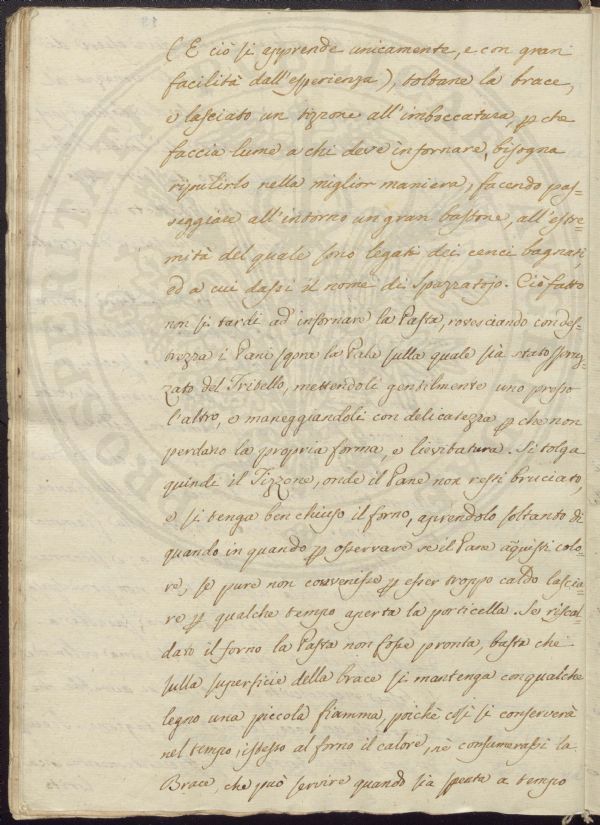 (E ciò si apprende unicamente, e con gran
facilità dall'esperienza), toltane la brace,
e lasciato un tizzone all'imboccatura, p che
faccia lume a chi deve infornare, bisogna
ripulirlo nella miglior maniera, facendo pas-
seggiare all'intorno un gran bastone, all'estre-
mità del quale sono legati dei cenci bagnati,
ed a cui dassi il nome di Spazzatojo. Ciò fatto
non si tardi ad infornare la Pasta, rovesciando con des-
trezza i Pani sopra la Pala sulla quale sia stato spruz-
zato del Tritello, mettendoli gentilmente uno presso
l'altro, e maneggiandoli con delicatezza p che non
perdano la propria forma, e lievitatura. Si tolga
quindi il Tizzone, onde il Pane non resti bruciato,
e si tenga ben chiuso il forno, aprendolo soltanto di
quando in quando p osservare se il Pane acquisti colo-
re, se pure non convenisse p esser troppo caldo lascia-
re p qualche tempo aperta la porticella. Se riscal-
dato il forno la Pasta non fosse pronta, basta che
sulla superficie della brace si mantenga con qualche
legno una piccola fiamma, poichè così si conserverà
nel tempo istesso al forno il calore, nè consumerassi la
Brace, che può servire quando sia spenta a tempo
PROSPERITA